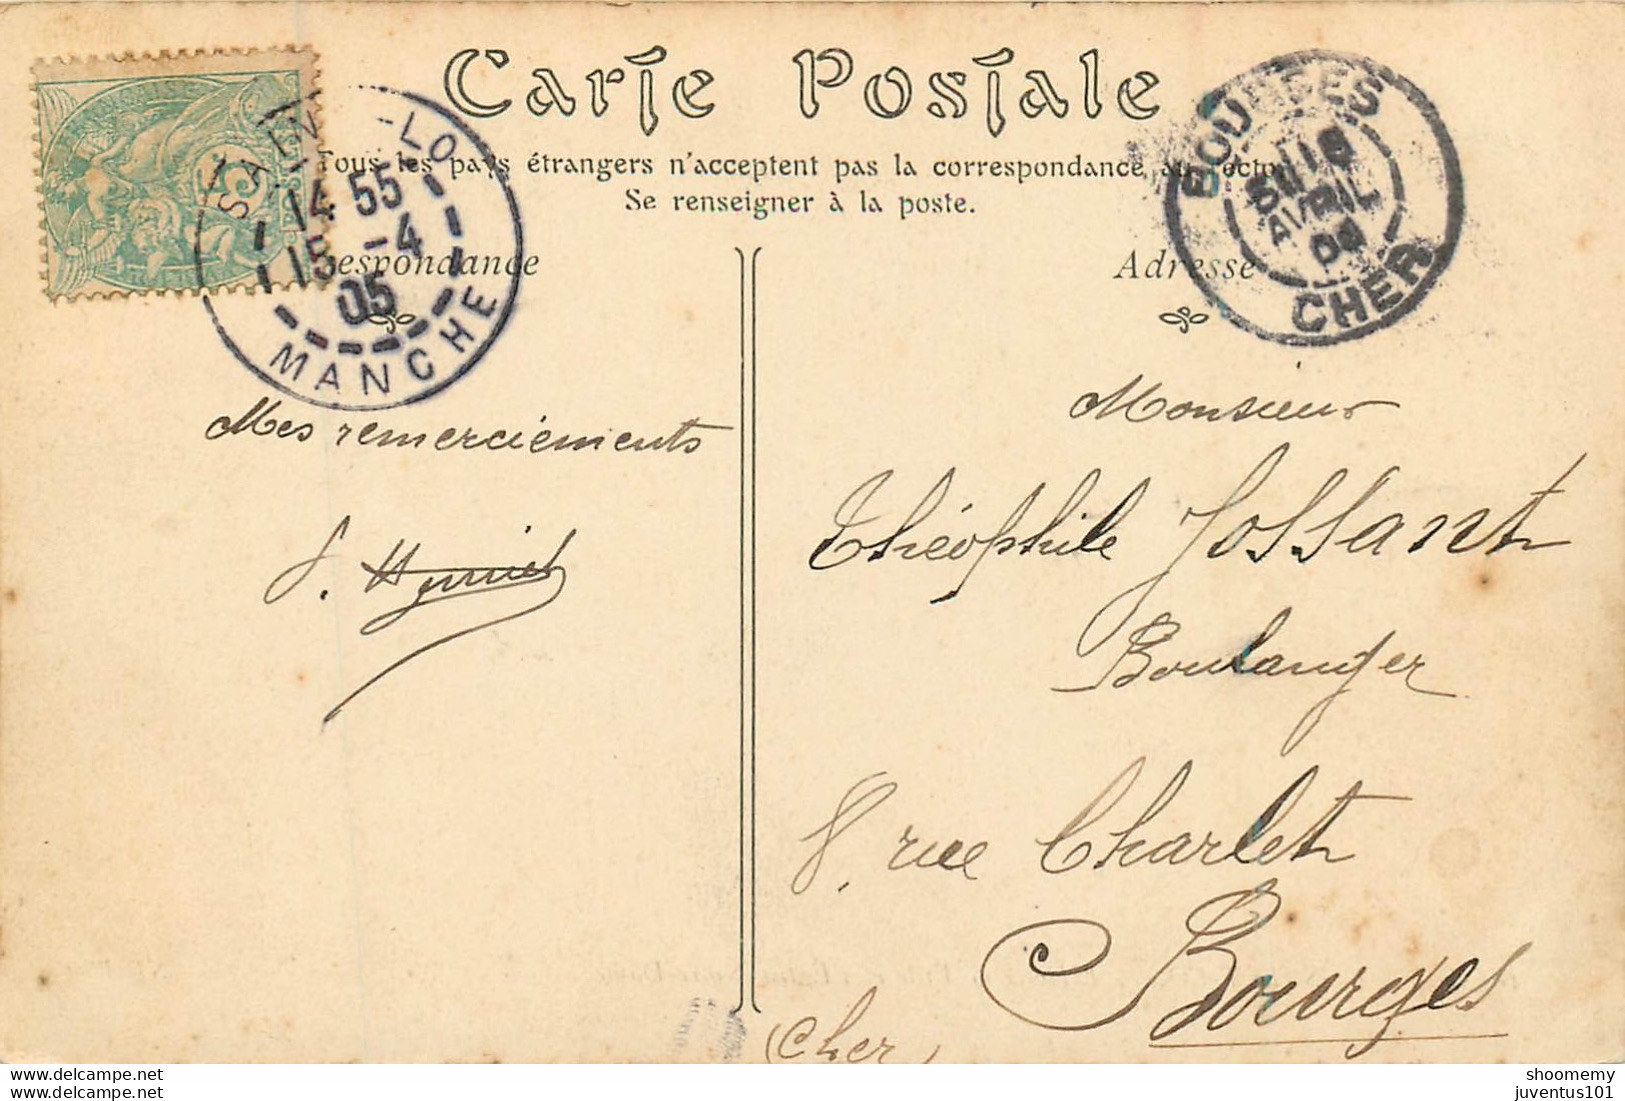 Carte Postale
Tous les pays étrangers n'acceptent pas la correspondance au recto
Se renseigner à la poste.
SAINT-LO
14 55
15 -4
05
MANCHE
BOURGES
AVRIL
CHER
Correspondance
Adresse
Mes remerciements
Monsieur
Théophile Jossant
Boulanger
8. rue Charlet
Bourges
(Cher)
shoomemy
juventus101